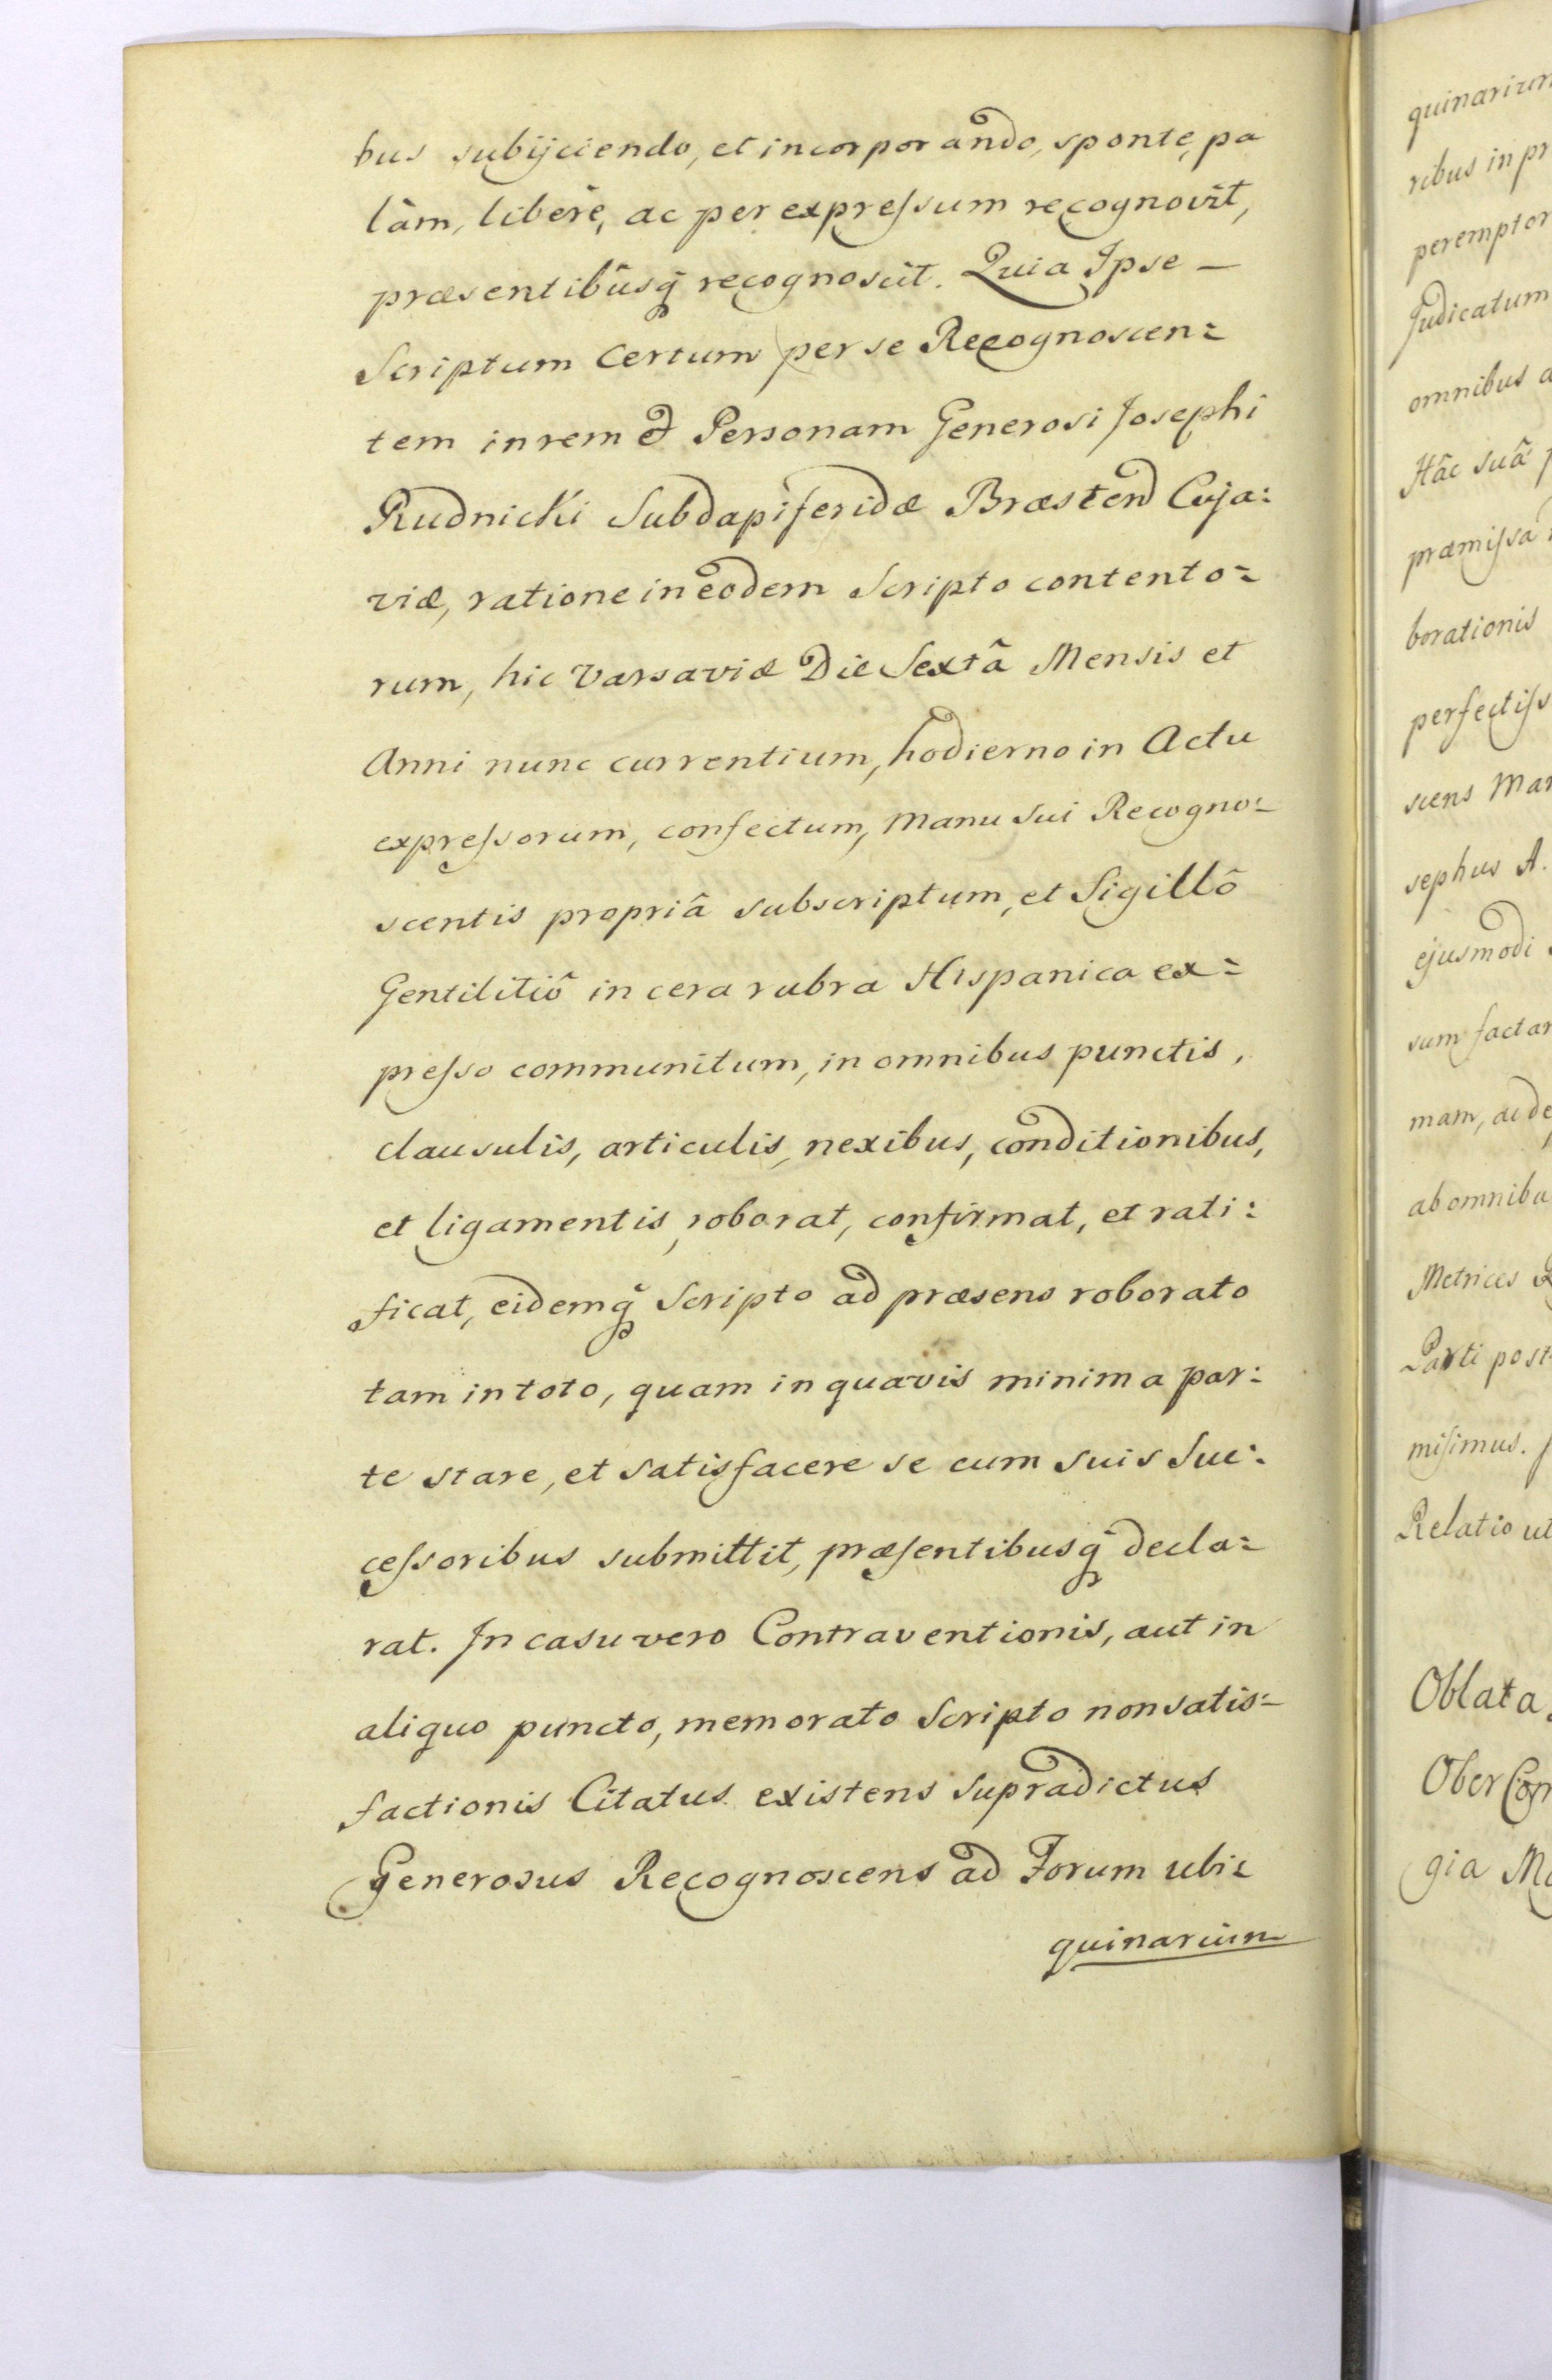 bus subijciendo, et incorporando, sponte, pa
lâm, liberè, ac per expressum recognovit,
præsentibûsq̃ recognoscit. Quia Ipse —
Scriptum Certum per se Recognoscen=
tem in rem et Personam Generosi Josephi
Rudnicki Subdapiferidæ Bræsten Cuja:
viæ, ratione in eodem Scripto contento=
rum, hic Varsaviæ Die Sextâ Mensis et
Anni nunc currentium, hodierno in Actu
expressorum, confectum, Manu Sui Recogno=
scentis propriâ subscriptum, et Sigillô
Gentilitiô in cera rubra Hispanica ex=
presso communitum, in omnibus punctis,
clausulis, articulis, nexibus, conditionibus,
et ligamentis, roborat, confirmat, et rati:
ficat, eidemq̃ Scripto ad præsens roborato
tam in toto, quam in quavis minima par:
te stare, et satisfacere se cum suis Suc:
cessoribus submittit, præsentibusq̃ decla=
rat. In casu vero Contraventionis, aut in
aliquo puncto, memorato Scripto non satis=
factionis Citatus existens Supradictus
Generosus Recognoscens ad Forum ubi=
quinarium
quinarium
ribus in pr
peremptor
Judicatum
omnibus a
Hâc suâ p
præmissa
borationis
perfectiss
scens Mar
sephus A.
ejusmodi
sum factar
mam, ac de
ab omnibu
Metrices
Parti post
misimus.
Relatio ut
Oblata
Ober Com
gia Ma